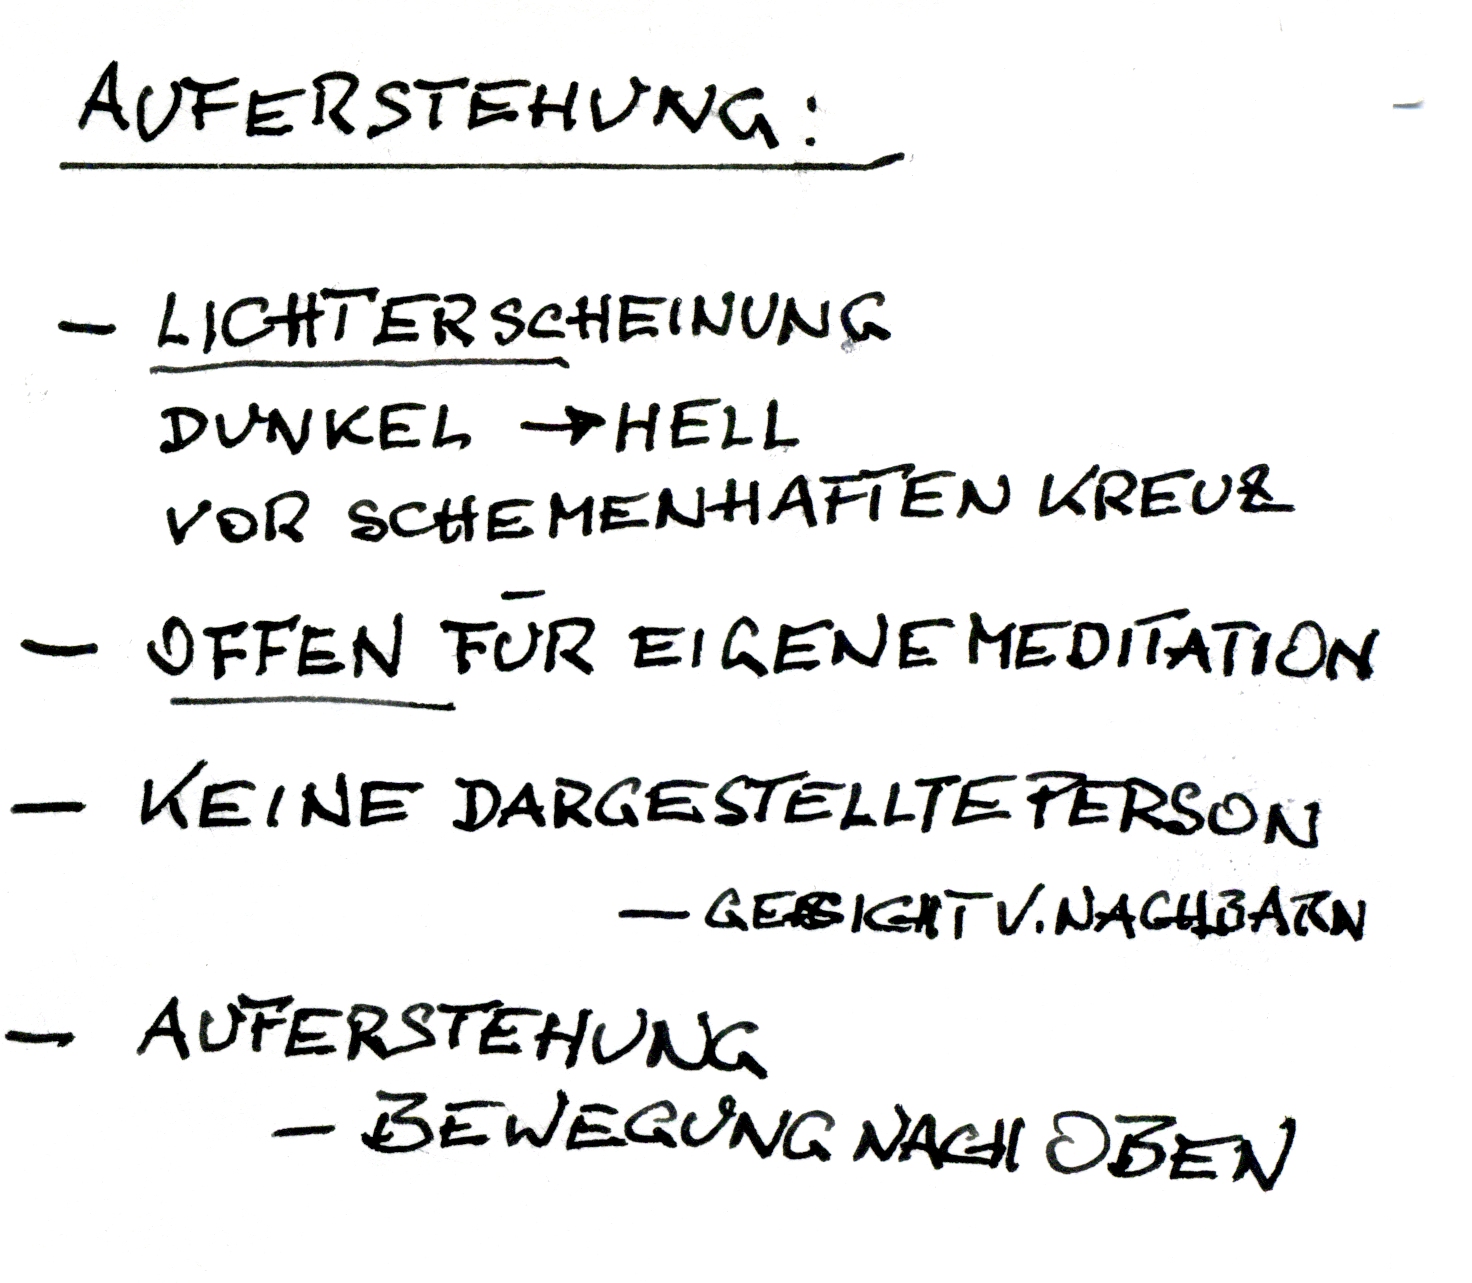 AUFERSTEHUNG:
– LICHTERSCHEINUNG
DUNKEL → HELL
VOR SCHEMENHAFTEN KREUZ
– OFFEN FÜR EIGENE MEDITATION
– KEINE DARGESTELLTE PERSON
– GESICHT V. NACHBARN
– AUFERSTEHUNG
– BEWEGUNG NACH OBEN